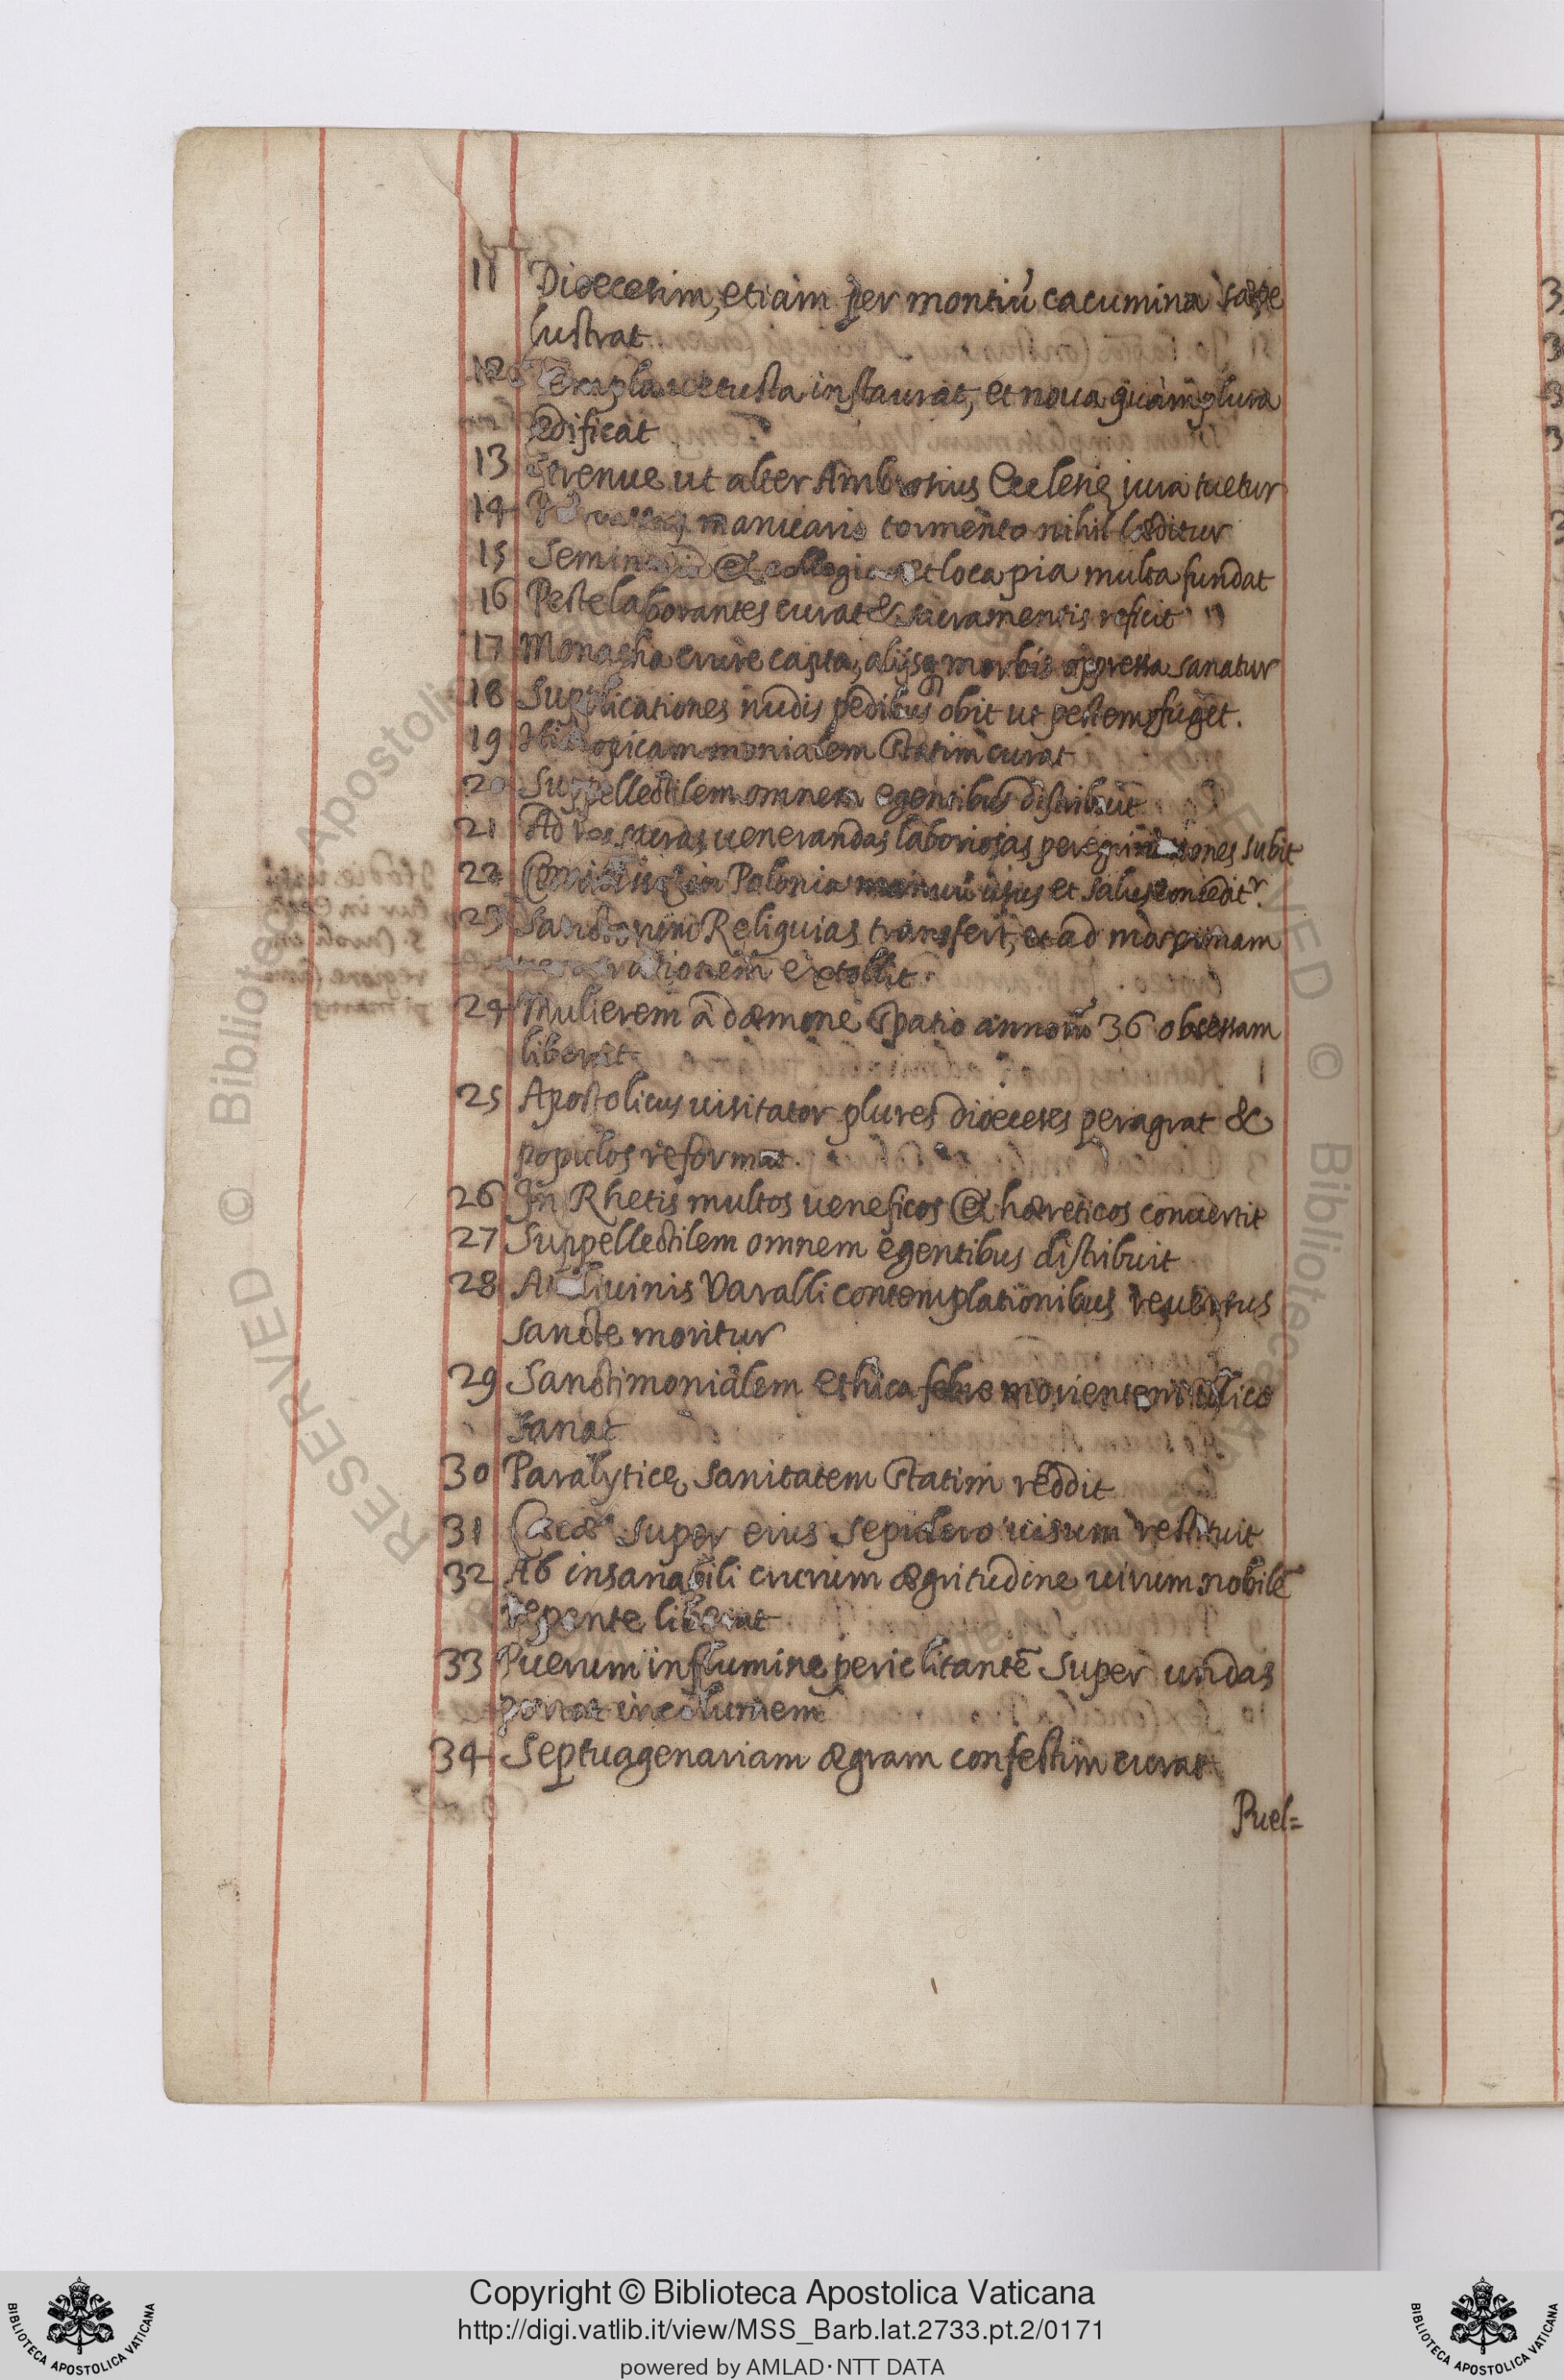 11 Dioecesim, etiam per montiũ cacumina saepe
lustrat
12 Templa uetusta instaurat, et noua quàmplura
ędificat
13 Strenue ut alter Ambrosius Ecclesię jura tuetur
14 manuario tormento nihil læditur
15 Seminaria & collegia et loca pia multa fundat
16 Peste laborantes curat & sacramentis reficit
17 Monacha crure capta, alijsq morbis oppressa sanatur
18 Supplicationes nudis pedibus obit ut pestem fuget.
19 Hidropicam monialem statim curat
20 Suppellectilem omnem egentibus distribuit
21 Ad res sacras uenerandas laboriosas peregrinationes subit
22 in Polonia manuũ usus et salus conceditr.
23 Sanctorum Reliquias transfert, et ad
uenerationem extollit.
24 Mulierem à dæmone spatio annorũ 36 obsessam
liberat
25 Apostolicus uisitator plures dioeceses peragrat &
populos reformat.
26 In Rhetis multos ueneficos & hæreticos conuertit
27 Suppellectilem omnem egentibus distribuit
28 A diuinis Varalli contemplationibus reuersus
sancte moritur
29 Sanctimoniàlem ethica febre morientem illico
sanat
30 Paralyticę sanitatem statim reddit
31 Cæcæ super eius sepulcro uisum restituit
32 Ab insanabili crurum ægritudine uirum nobilẽ
repente liberat
33 Puerum in flumine periclitantẽ super undas
portat incolumem
34 Septuagenariam ægram confestim curat
Puel=
RESERVED © Biblioteca Apostolica
RESERVED © Biblioteca Apostolica
Copyright © Biblioteca Apostolica Vaticana
http://digi.vatlib.it/view/MSS_Barb.lat.2733.pt.2/0171
powered by AMLAD·NTT DATA
BIBLIOTECA APOSTOLICA VATICANA
BIBLIOTECA APOSTOLICA VATICANA